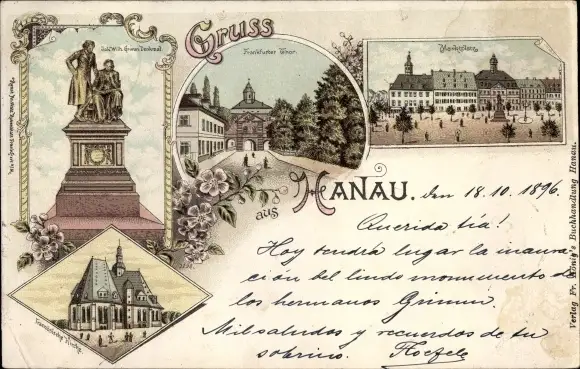 Gruss
aus HANAU.
Jak. Wilh. Grimm Denkmal
Frankfurter Thor.
Marktplatz.
Französische Kirche.
den 18.10.1896
Querida tía!
Hoy tendrá lugar la inaura-
ción del lindo monumento de
los hermanos Grimm
Mil saludos y recuerdos de tu
sobrino.
Verlag Fr. König's Buchhandlung Hanau.